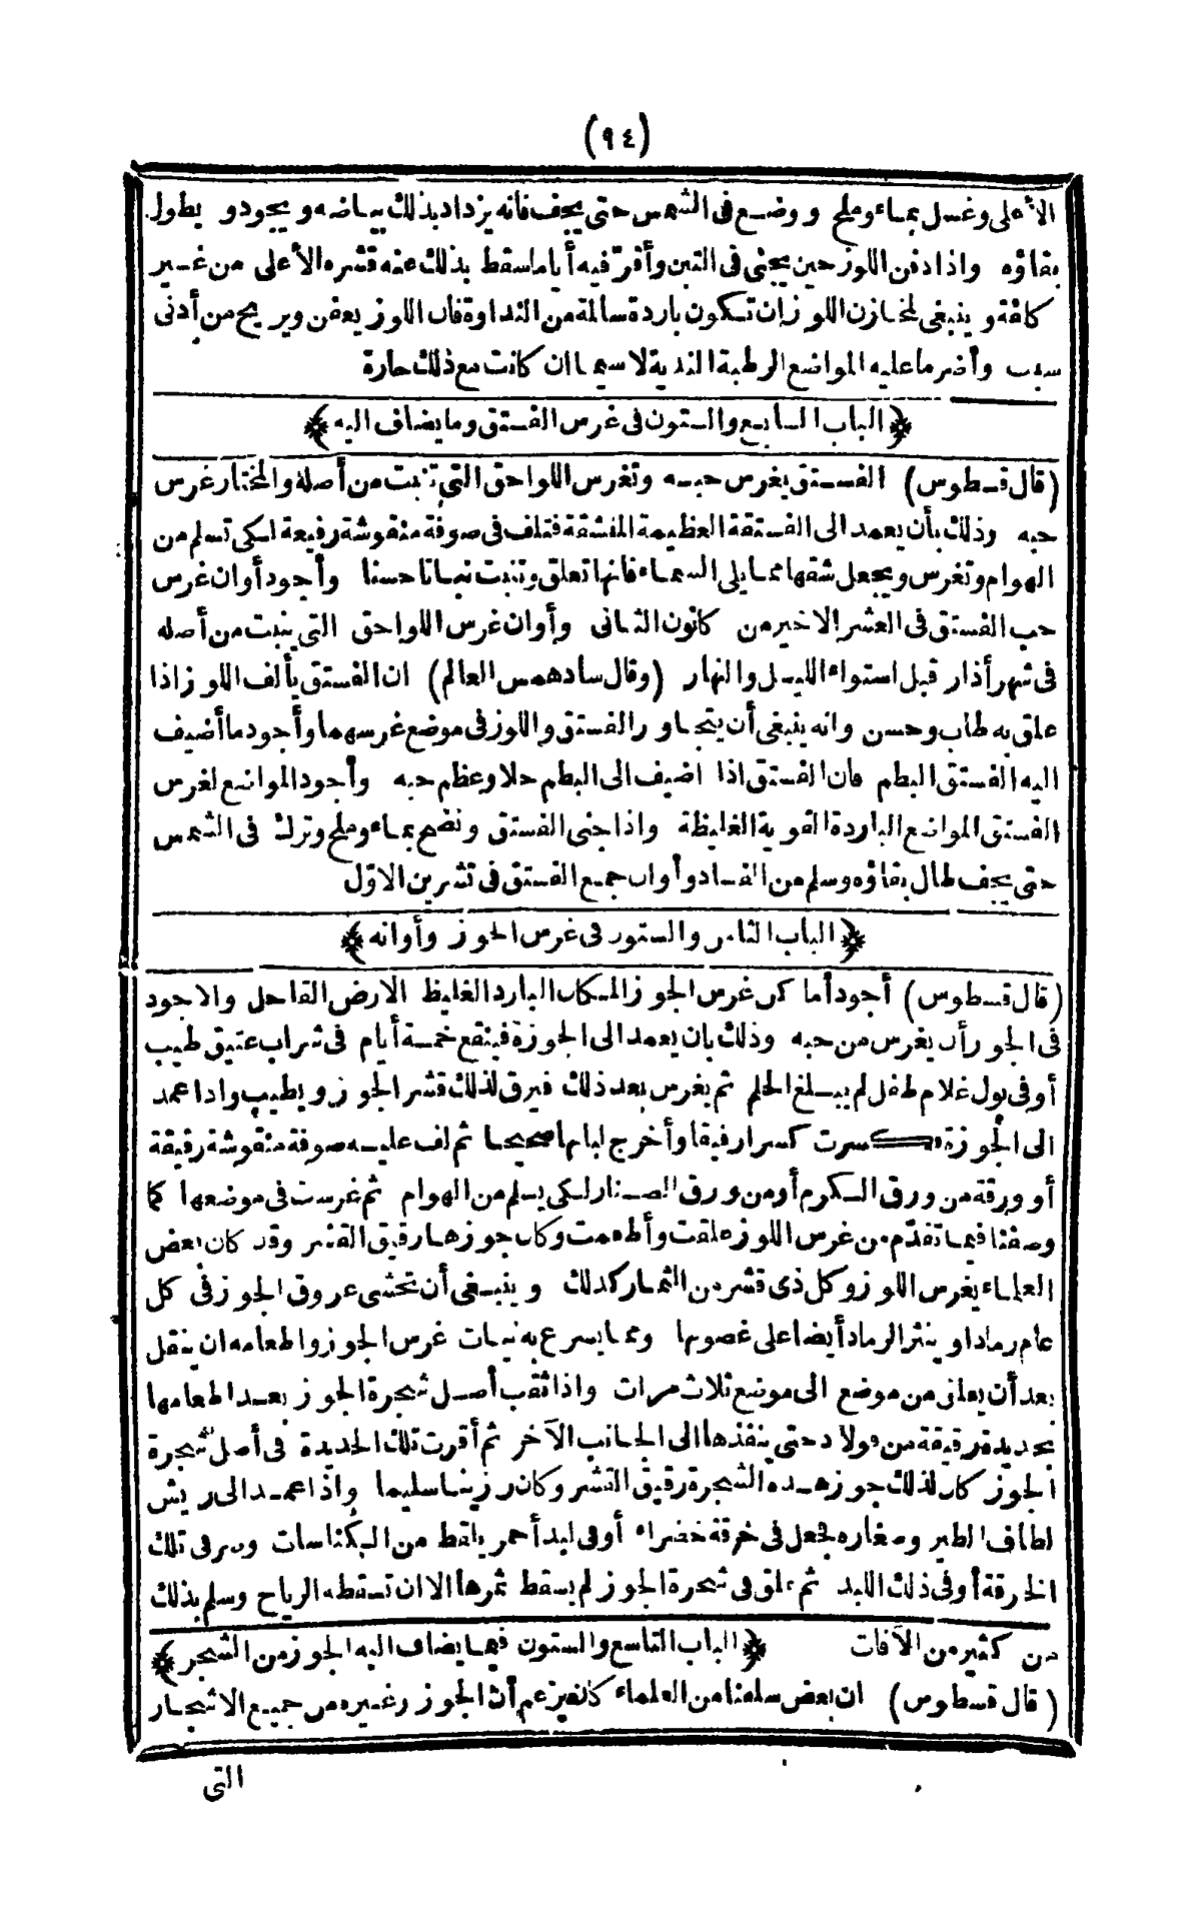 (٩٤)
الأعلى وغسل بماء وملح ووضع فى الشمس حتى يجف فانه يزداد بذلك بياضه ويجود ويطول
بقاؤه واذا دفن اللوز حين يجنى فى التبن وأقرّ فيه أياما سقط بذلك عنه قشره الأعلى من غير
كلفة وينبغى لمخازن اللوز ان تكون باردة سالمة من النداوة فان اللوز يعفن ويريح من أدنى
سبب وأضر ما عليه المواضع الرطبة الندية لاسيما ان كانت مع ذلك حارة
﴿الباب السابع والستون فى غرس الفستق وما يضاف اليه﴾
(قال قسطوس) الفستق يغرس حبه وتغرس اللواحق التى تنبت من أصله والمختار غرس
حبه وذلك بأن يعمد الى الفستقة العظيمة المنشقة فتلف فى صوفة منقوشة رفيعة لكى تسلم من
الهوام وتغرس ويجعل شقها مما يلى السماء فانها تعلق وتنبت نباتا حسنا وأجود أوان غرس
حب الفستق فى العشر الاخير من كانون الثانى وأوان غرس اللواحق التى ينبت من أصله
فى شهر أذار قبل استواء الليل والنهار (وقال سادهمس العالم) ان الفستق يألف اللوز اذا
علق به طاب وحسن وانه ينبغى أن يتجاور الفستق واللوز فى موضع غرسهما وأجود ما أضيف
اليه الفستق البطم فان الفستق اذا اضيف الى البطم حلا وعظم حبه وأجود المواضع لغرس
الفستق المواضع الباردة القوية الغليظة واذا جنى الفستق ونضح بماء وملح وترك فى الشمس
حتى يجف طال بقاؤه وسلم من الفساد وأوان جمع الفستق فى تشرين الاوّل
﴿الباب الثامن والستون فى غرس الجوز وأوانه﴾
(قال قسطوس) أجود أماكن غرس الجوز المكان البارد الغليظ الارض القاحل والاجود
فى الجوز أن يغرس من حبه وذلك بان يعمد الى الجوزة فينقع خمسة أيام فى شراب عتيق طيب
أو فى بول غلام طفل لم يبلغ الحلم ثم يغرس بعد ذلك فيرق لذلك قشر الجوز ويطيب واذا عمد
الى الجوزة فكسرت كسرا رفيقا وأخرج لبابها صحيحا ثم لف عليه صوفة منقوشة رقيقة
أو ورقة من ورق الكرم أو من ورق الصنار لكى يسلم من الهوام ثم غرست فى موضعها كما
وصفنا فيما تقدّم من غرس اللوز علقت وأطعمت وكان جوزها رقيق القشر وقد كان بعض
العلماء يغرس اللوز وكل ذى قشر من الثمار كذلك وينبغى أن تحشى عروق الجوز فى كل
عام رمادا وينثر الرماد أيضا على غصونها ومما يسرع به نبات غرس الجوز واطعامه ان ينقل
بعد أن يعلق من موضع الى موضع ثلاث مرات واذا ثقب أصل شجرة الجوز بعد اطعامها
بحديدة رقيقة من فولاد حتى ينفذها الى الجانب الآخر ثم أقرت تلك الحديدة فى أصل شجرة
الجوز كان لذلك جوز هذه الشجرة رقيق القشر وكان رزينا سليما واذا عمد الى ريش
لطاف الطير وصغاره فجعل فى خرقة خضراء أو فى لبد أحمر يلقط من الكناسات وصر فى تلك
الخرقة أو فى ذلك اللبد ثم علق فى شجرة الجوز لم يسقط ثمرها الا ان تسقطه الرياح وسلم بذلك
من كثير من الآفات ﴿الباب التاسع والستون فيما يضاف اليه الجوز من الشجر﴾
(قال قسطوس) ان بعض سلفنا من العلماء كان يزعم أن الجوز وغيره من جميع الاشجار
التى